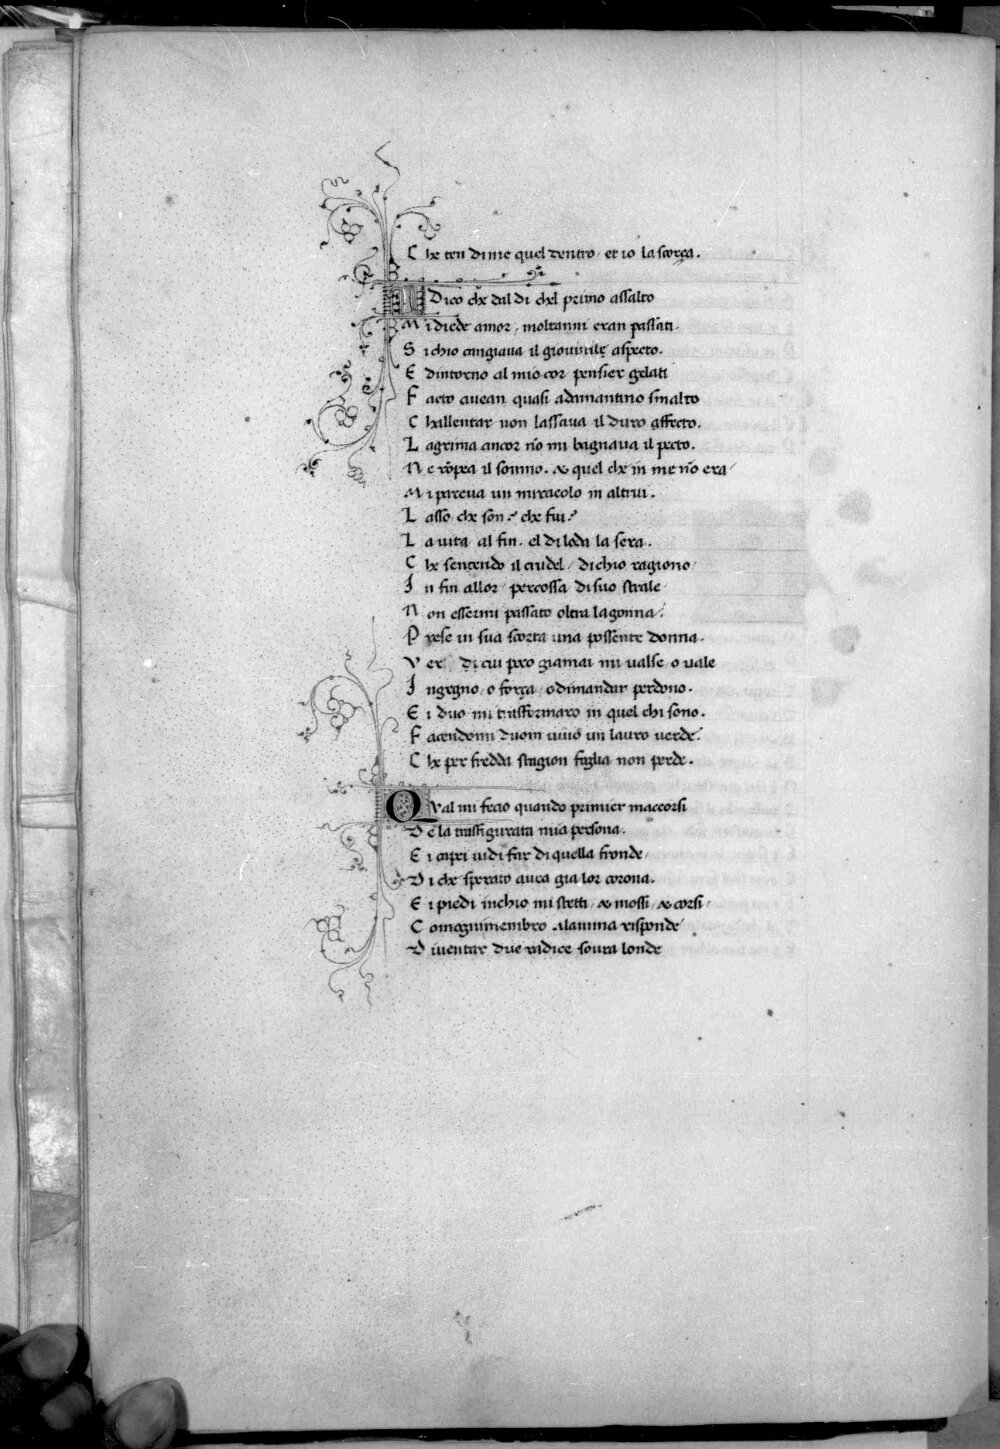 C he ten di me quel dentro, et io la scorça.
I Dico che dal di chel primo assalto
M i diede amor, moltanni eran passati.
S i chio cangiaua il giouinile aspecto.
E dintorno al mio cor pensier gelati
F acto auean quasi adamantino smalto
C hallentar non lassaua il duro affecto.
L agrima ancor nō mi bagnaua il pecto.
N e rōpea il somno. & quel che in me nō era
M i pareua un miracolo in altrui.
L asso che son? che fui?
L a uita al fin. el di loda la sera.
C he sentendo il crudel, di chio ragiono
I n fin allor percossa di suo strale
N on essermi passato oltra la gonna.
P rese in sua scorta una possente donna.
V er di cui poco giamai mi ualse o uale
I ngegno, o força, o dimandar perdono.
E i duo mi trasformaro in quel chi sono.
F acendomi duom uiuo un lauro uerde.
C he per fredda stagion foglia non perde.
Q Val mi fecio quando primier maccorsi
D e la trasfigurata mia persona.
E i capei uidi far di quella fronde,
D i che sperato auea gia lor corona.
E i piedi inchio mi stetti, & mossi, & corsi,
C omogni membro alanima risponde
D iuentar due radice soura londe